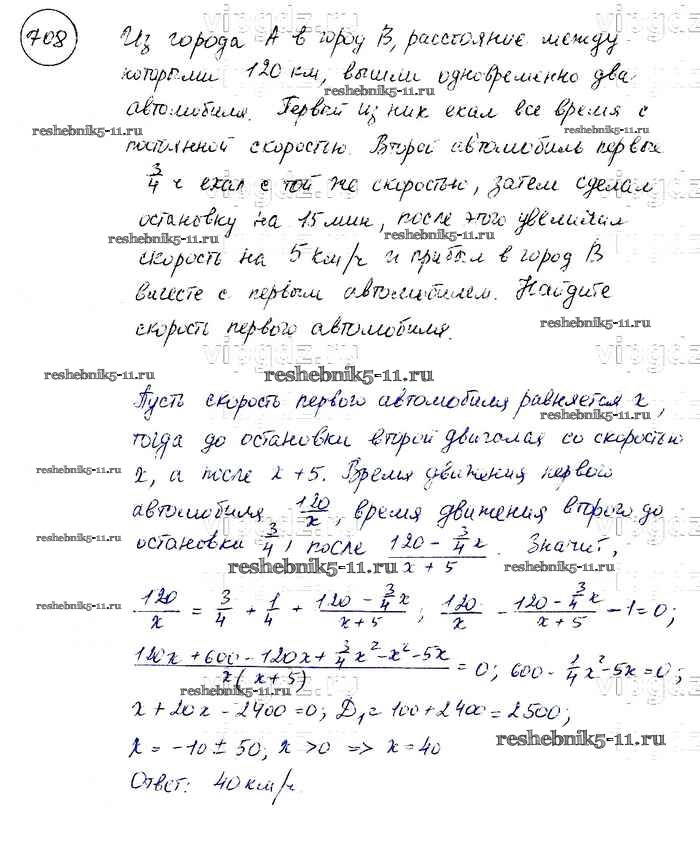 708
Из города А в город В, расстояние между
которыми 120 км, вышли одновременно два
автомобиля. Первый из них ехал все время с
постоянной скоростью. Второй автомобиль первые
3/4 ч ехал с той же скоростью, затем сделал
остановку на 15 мин, после этого увеличил
скорость на 5 км/ч и прибыл в город В
вместе с первым автомобилем. Найдите
скорость первого автомобиля.
Пусть скорость первого автомобиля равняется x,
тогда до остановки второй двигался со скоростью
x, а после x + 5. Время движения первого
автомобиля 120/x, время движения второго до
остановки 3/4, после (120 - 3/4 x)/(x + 5). Значит,
120/x = 3/4 + 1/4 + (120 - 3/4 x)/(x + 5); 120/x - (120 - 3/4 x)/(x + 5) - 1 = 0;
(120x + 600 - 120x + 3/4 x² - x² - 5x)/(x(x + 5)) = 0; 600 - 1/4 x² - 5x = 0;
x + 20x - 2400 = 0; D₁ = 100 + 2400 = 2500;
x = -10 ± 50; x > 0 => x = 40
Ответ: 40 км/ч.
reshebnik5-11.ru
vipgdz.com